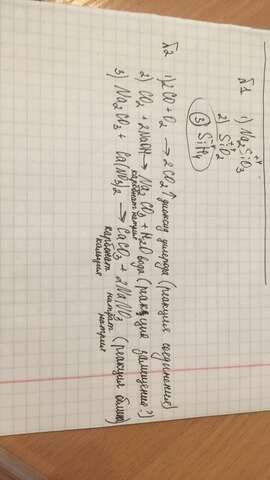 №1 1) Na₂SiO₃
2) SiO₂
3) SiH₄
№2 1) 2CO + O₂ → 2CO₂↑ диоксид углерода (реакция соединения)
2) CO₂ + 2NaOH → Na₂CO₃ + H₂O вода (реакция замещения?)
карбонат натрия
3) Na₂CO₃ + Ca(NO₃)₂ → CaCO₃ + 2NaNO₃ (реакция
карбонат кальция нитрат натрия